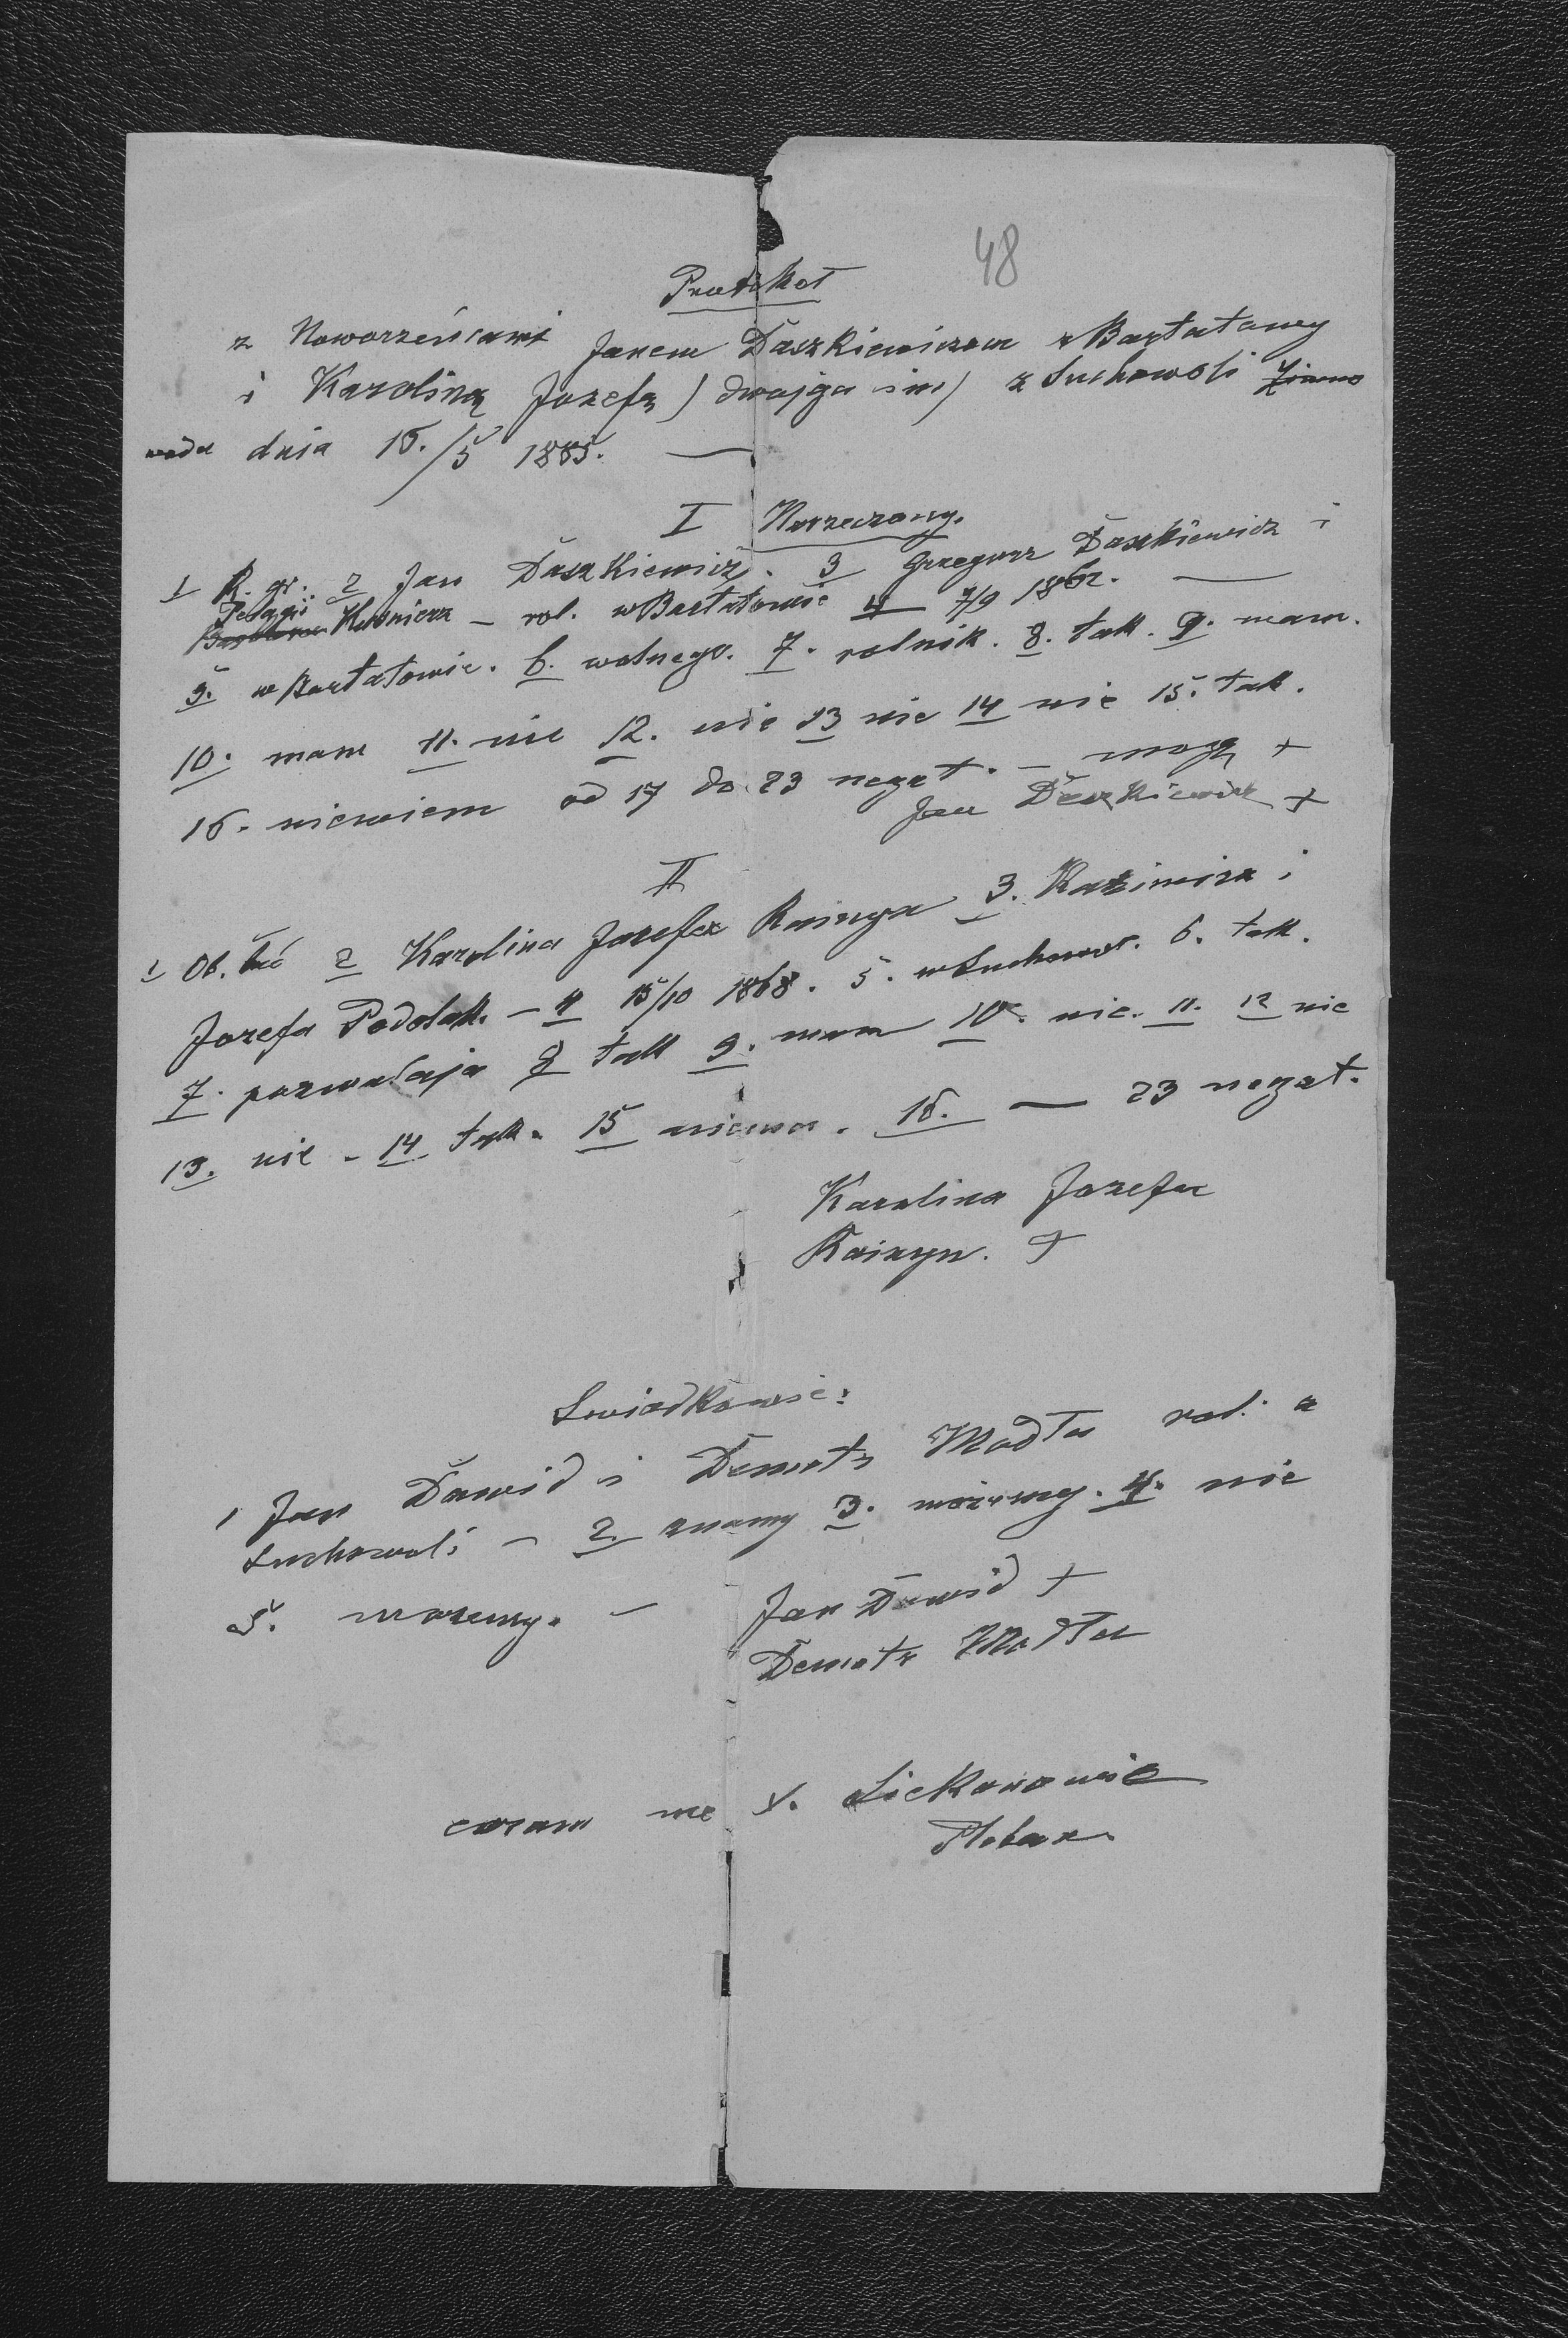 48
Protokot
z Noworzeńcami Janem Daszkiewiczem z Bartatowy
i Karoliną Jozefą) dwojga im) z Suchowoli Zimno
woda dnia 16./5 1885. —
I Narzeczony.
1 R. gr: 2 Jan Daszkiewicz. 3 Grzegorz Daszkiewicz i
Pelagii
Kusnierz – rol. w Bartatowie 4 7/9 1862. —
5. w Bartatowie. 6. wolnego. 7. rolnik. 8. tak. 9. mam.
10. mam 11. nie 12. nie 13 nie 14 nie 15. tak.
16. niewiem od 17 do 23 negat. – mogą +
Jan Daszkiewicz +
II
1 Ob. łać 2 Karolina Jozefa Rainyn 3. Kazimirz i
Jozefa Podolak. – 4 15/10 1868. 5. w Suchowo. 6. tak.
7. pozwalaja 8 tak 9. mam 10. nie. 11. 12 nie
13. nie – 14 tak. 15 niema. 16. — 23 negat.
Karolina Jozefa
Rainyn. +
Swiadkowie:
1 Jan Dawid i Demetr Madła rol. z
Suchowoli – 2. znamy 3. możemy. 4. nie
5. mozemy. –
Jan Dawid +
Demetr Madła
coram me X. Siekanowic
Pleban.